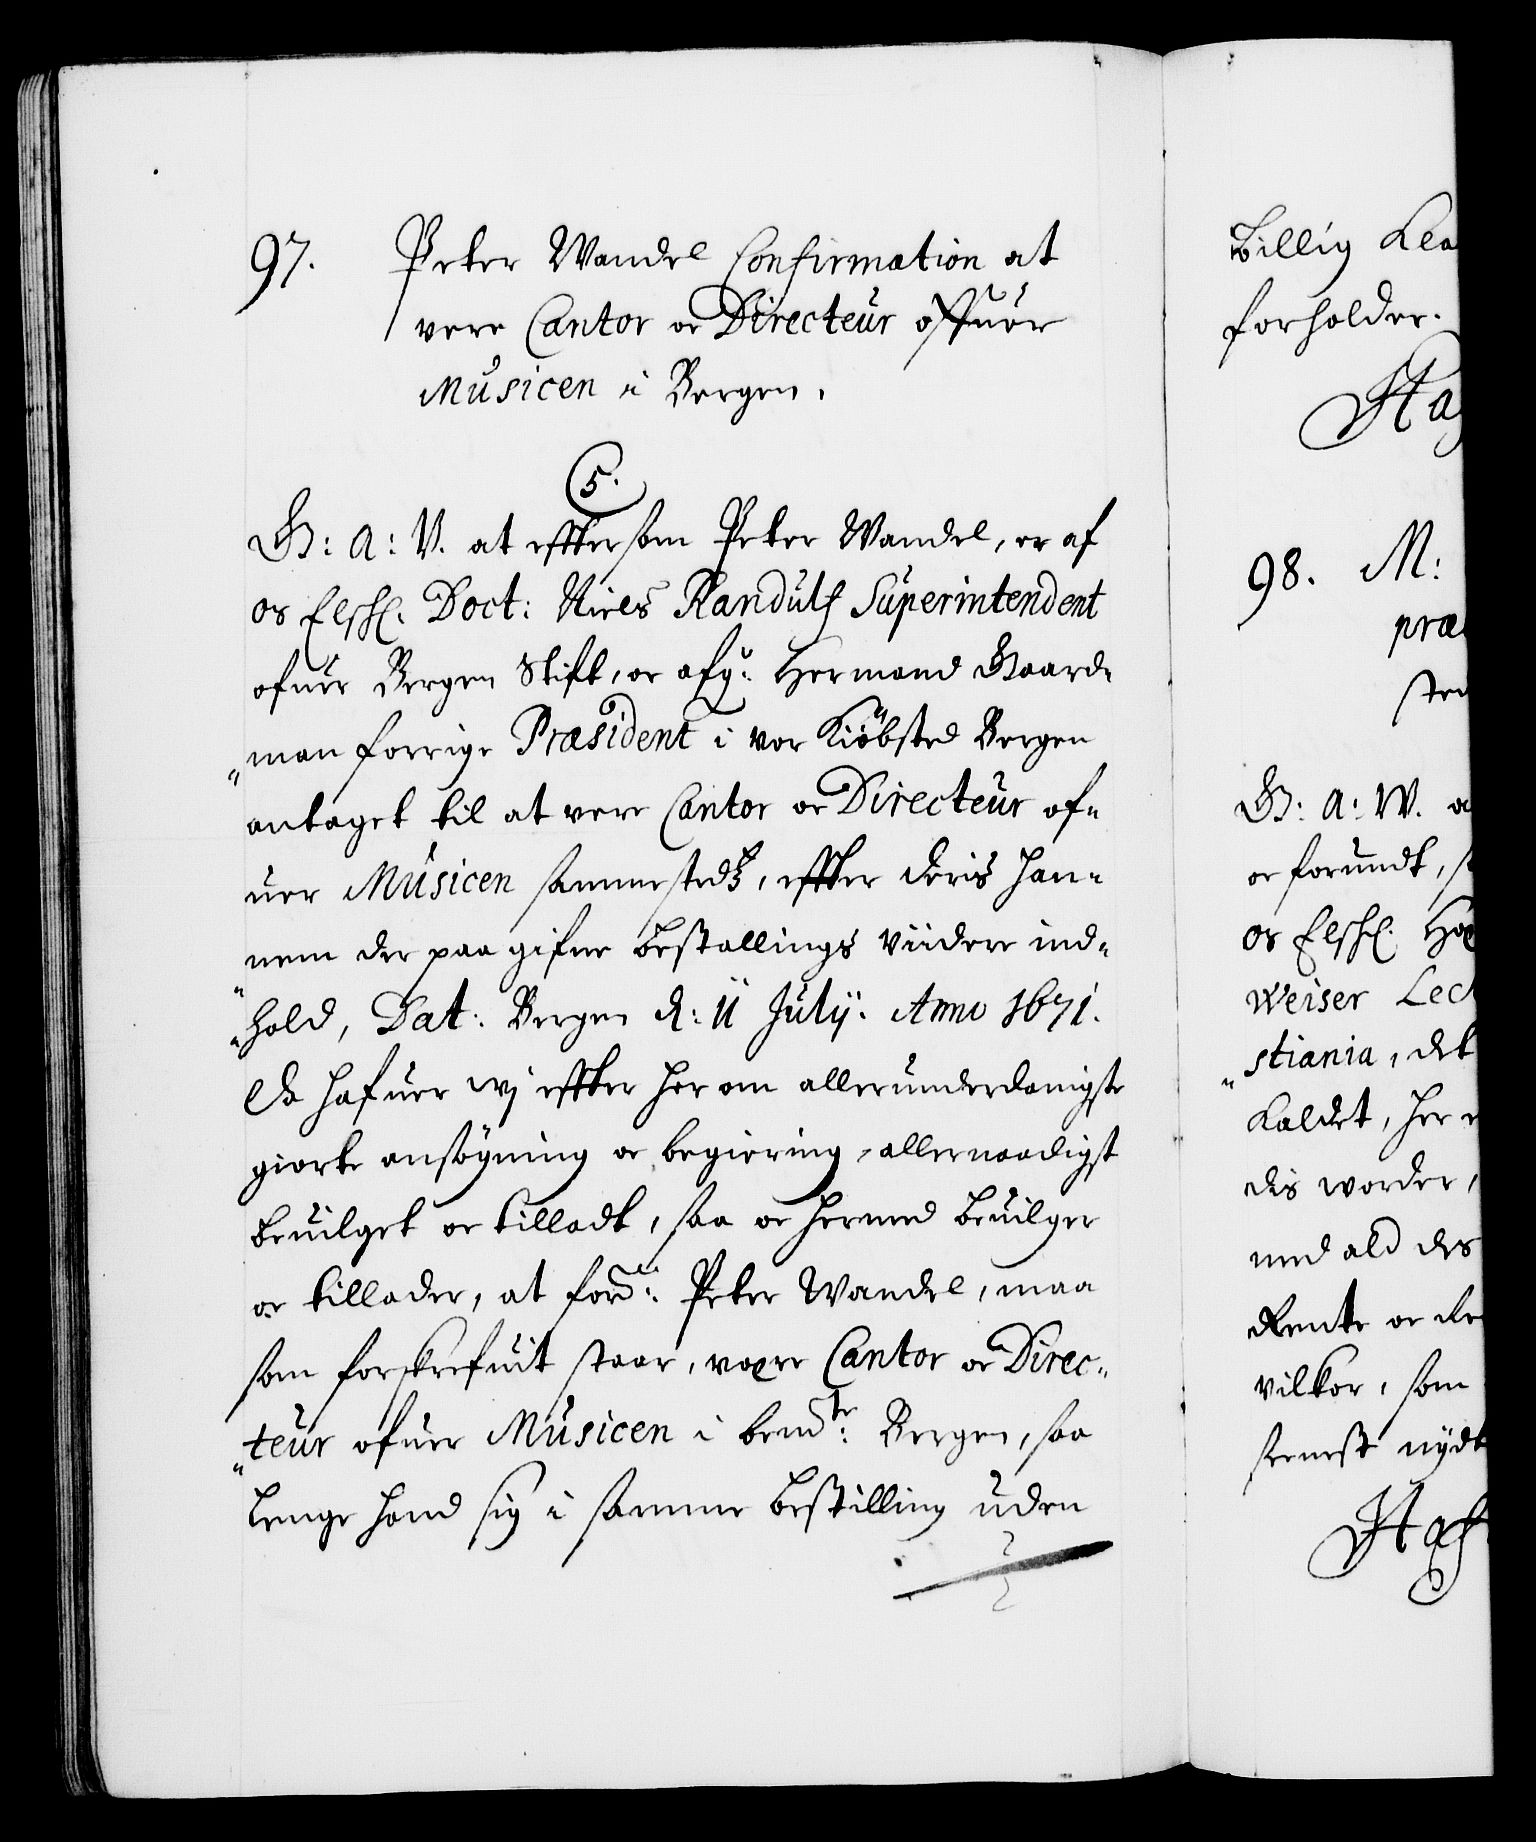 97. Peter Wandel Confirmation at
vere Cantor oc Directeur offuer
Musicen i Bergen.
C5.
G: A: V. at efftersom Peter Wandel, er af
os Elschl. Doct: Niels Randulf Superintendent
ofuer Bergen Stift, oc afg: Hermand Gaard-
man forrige Præsident i vor Kiöbsted Bergen
antaget til at vere Cantor oc Directeur of-
uer Musicen sammestedtz, effter deris han-
nem der paa gifne bestallings viidere ind-
hold, Dat: Bergen d: 11 July. Anno 1671.
Da hafuer wj effter her om allerunderdanigste
giorte ansögning oc begiering, allernaadigst
beuilget oc tilladt, saa oc hermed beuilger
oc tillader, at ford: Peter Wandel, maa
som forskrefuit staar, være Cantor oc Direc-
teur ofuer Musicen i bemdte: Bergen, saa
lenge hand sig i samme bestilling uden
billig
forholder.
98. M:
G: A: W.
oc forundt,
os Elschl.
Weiser Lect
stiania, det
Kaldet, her
dis worder,
med ald des
Rente oc
vilkor, som
senest nydt